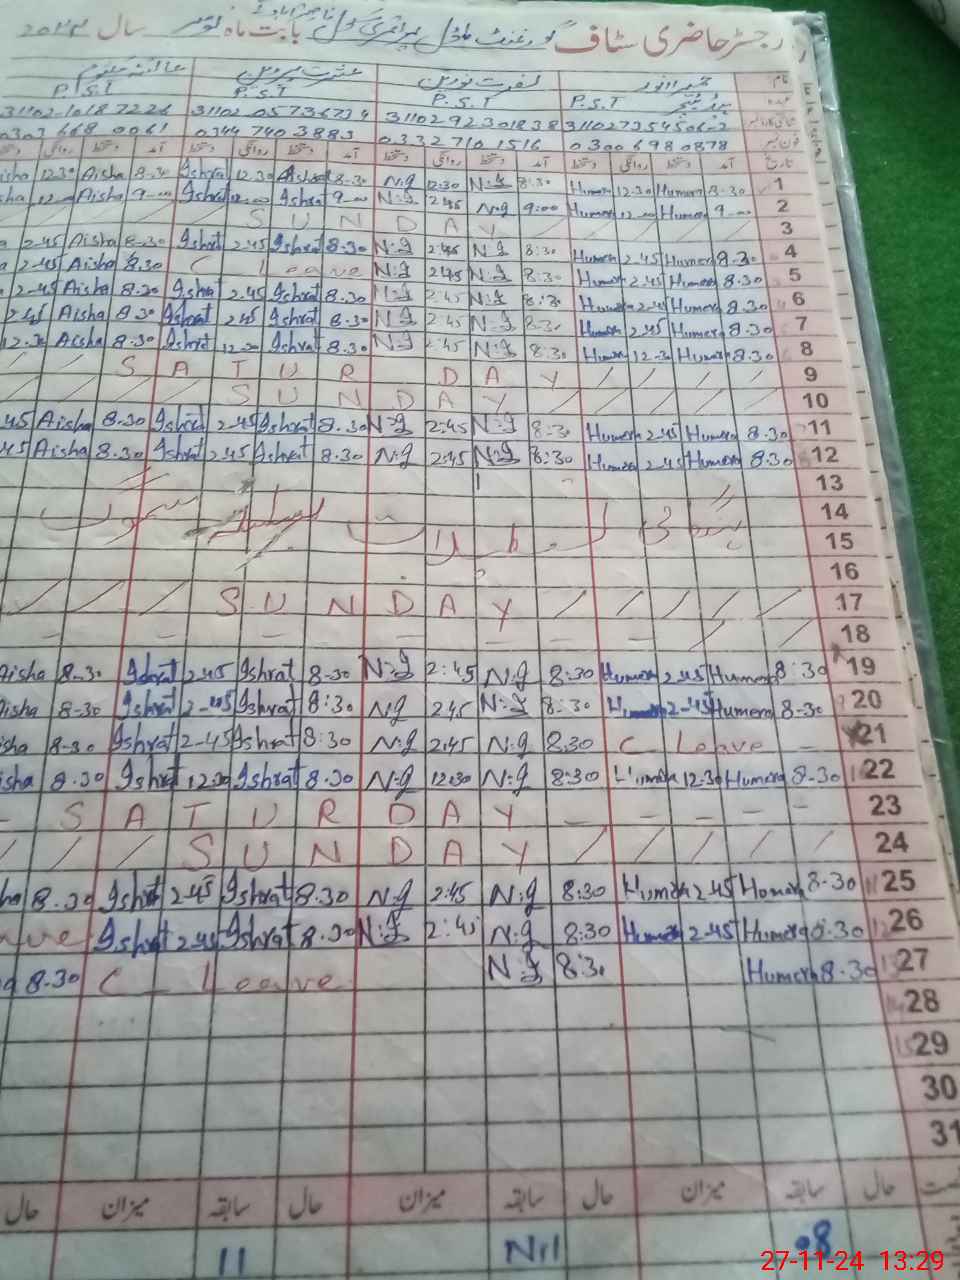 رجسٹر حاضری سٹاف گورنمنٹ ماڈل پرائمری سکول بابت ماہ نومبر سال
نام حمیرا انور نصرت نورین عشرت پروین
عہدہ ہیڈ ٹیچر P.S.T P.S.T P.S.T P.S.T
31102 9230183 8 31102 0573673 4 31102-1018 7226
فون نمبر 0300 698 0878 0332 710 1516 0344 740 3883 0303 668 0061
تاریخ آمد دستخط روانگی دستخط آمد دستخط روانگی دستخط آمد دستخط روانگی دستخط آمد دستخط روانگی
12.30 Aisha 8-30 Ishrat 12.30 Ishrat 8-30 N:g 12:30 N:g 8:30 Humera 12-30 Humera 8-30 1
Aisha 9-00 Ishrat Ishra 9-00 N:g 2:45 N:g 9:00 Humera 12-00 Humera 9-00 2
S U N D A Y 3
2-45 Aisha 8-30 Ishrat 2-45 Ishrat 8.30 N:g 2:45 N:g 8:30 Humera 2.45 Humera 8.30 4
2-45 Aisha 8.30 C Leave N:g 2:45 N:g 8:30 Humera 2.45 Humera 8.30 5
2-45 Aisha 8.30 Ishrat 2.45 Ishrat 8.30 N:g 2:45 N:g 8:30 Humera 2-45 Humera 8.30 6
2.45 Aisha 8.30 Ishrat 2.45 Ishrat 8.30 N:g 2:45 N:g 8:30 Humera 2.45 Humera 8.30 7
12.30 Aisha 8.30 Ishrat 12.30 Ishrat 8.30 N:g 2:45 N:g 8:30 Humera 12-30 Humera 8.30 8
S A T U R D A Y 9
S U N D A Y 10
45 Aisha 8.30 Ishrat 2-45 Ishrat 8.30 N:g 2:45 N:g 8:30 Humera 2-45 Humera 8.30 11
45 Aisha 8.30 Ishrat 2.45 Ishrat 8.30 N:g 2:45 N:g 8:30 Humera 2.45 Humera 8.30 12
13
14
15
16
S U N D A Y 17
18
Aisha 8-30 Ishrat 2-45 Ishrat 8-30 N:g 2:45 N:g 8:30 Humera 2-45 Humera 8:30 19
Aisha 8-30 Ishrat 2-45 Ishrat 8:30 N:g 2:45 N:g 8:30 Humera 2-45 Humera 8-30 20
isha 8-30 Ishrat 2-45 Ishrat 8:30 N:g 2:45 N:g 8:30 C Leave 21
isha 8.30 Ishrat 12.30 Ishrat 8.30 N:g 12:30 N:g 8:30 Humera 12.30 Humera 8-30 22
S A T U R D A Y 23
S U N D A Y 24
8.30 Ishrat 2.45 Ishrat 8.30 N:g 2:45 N:g 8:30 Humera 2.45 Humera 8-30 25
ave Ishrat 2.45 Ishrat 8.30 N:g 2:45 N:g 8:30 Humera 2-45 Humera 8.30 26
8.30 C Leave N:g 8:30 Humera 8.30 27
28
29
30
31
حال سابقہ میزان حال سابقہ میزان حال سابقہ میزان حال
08 Nil 11
27-11-24 13:29